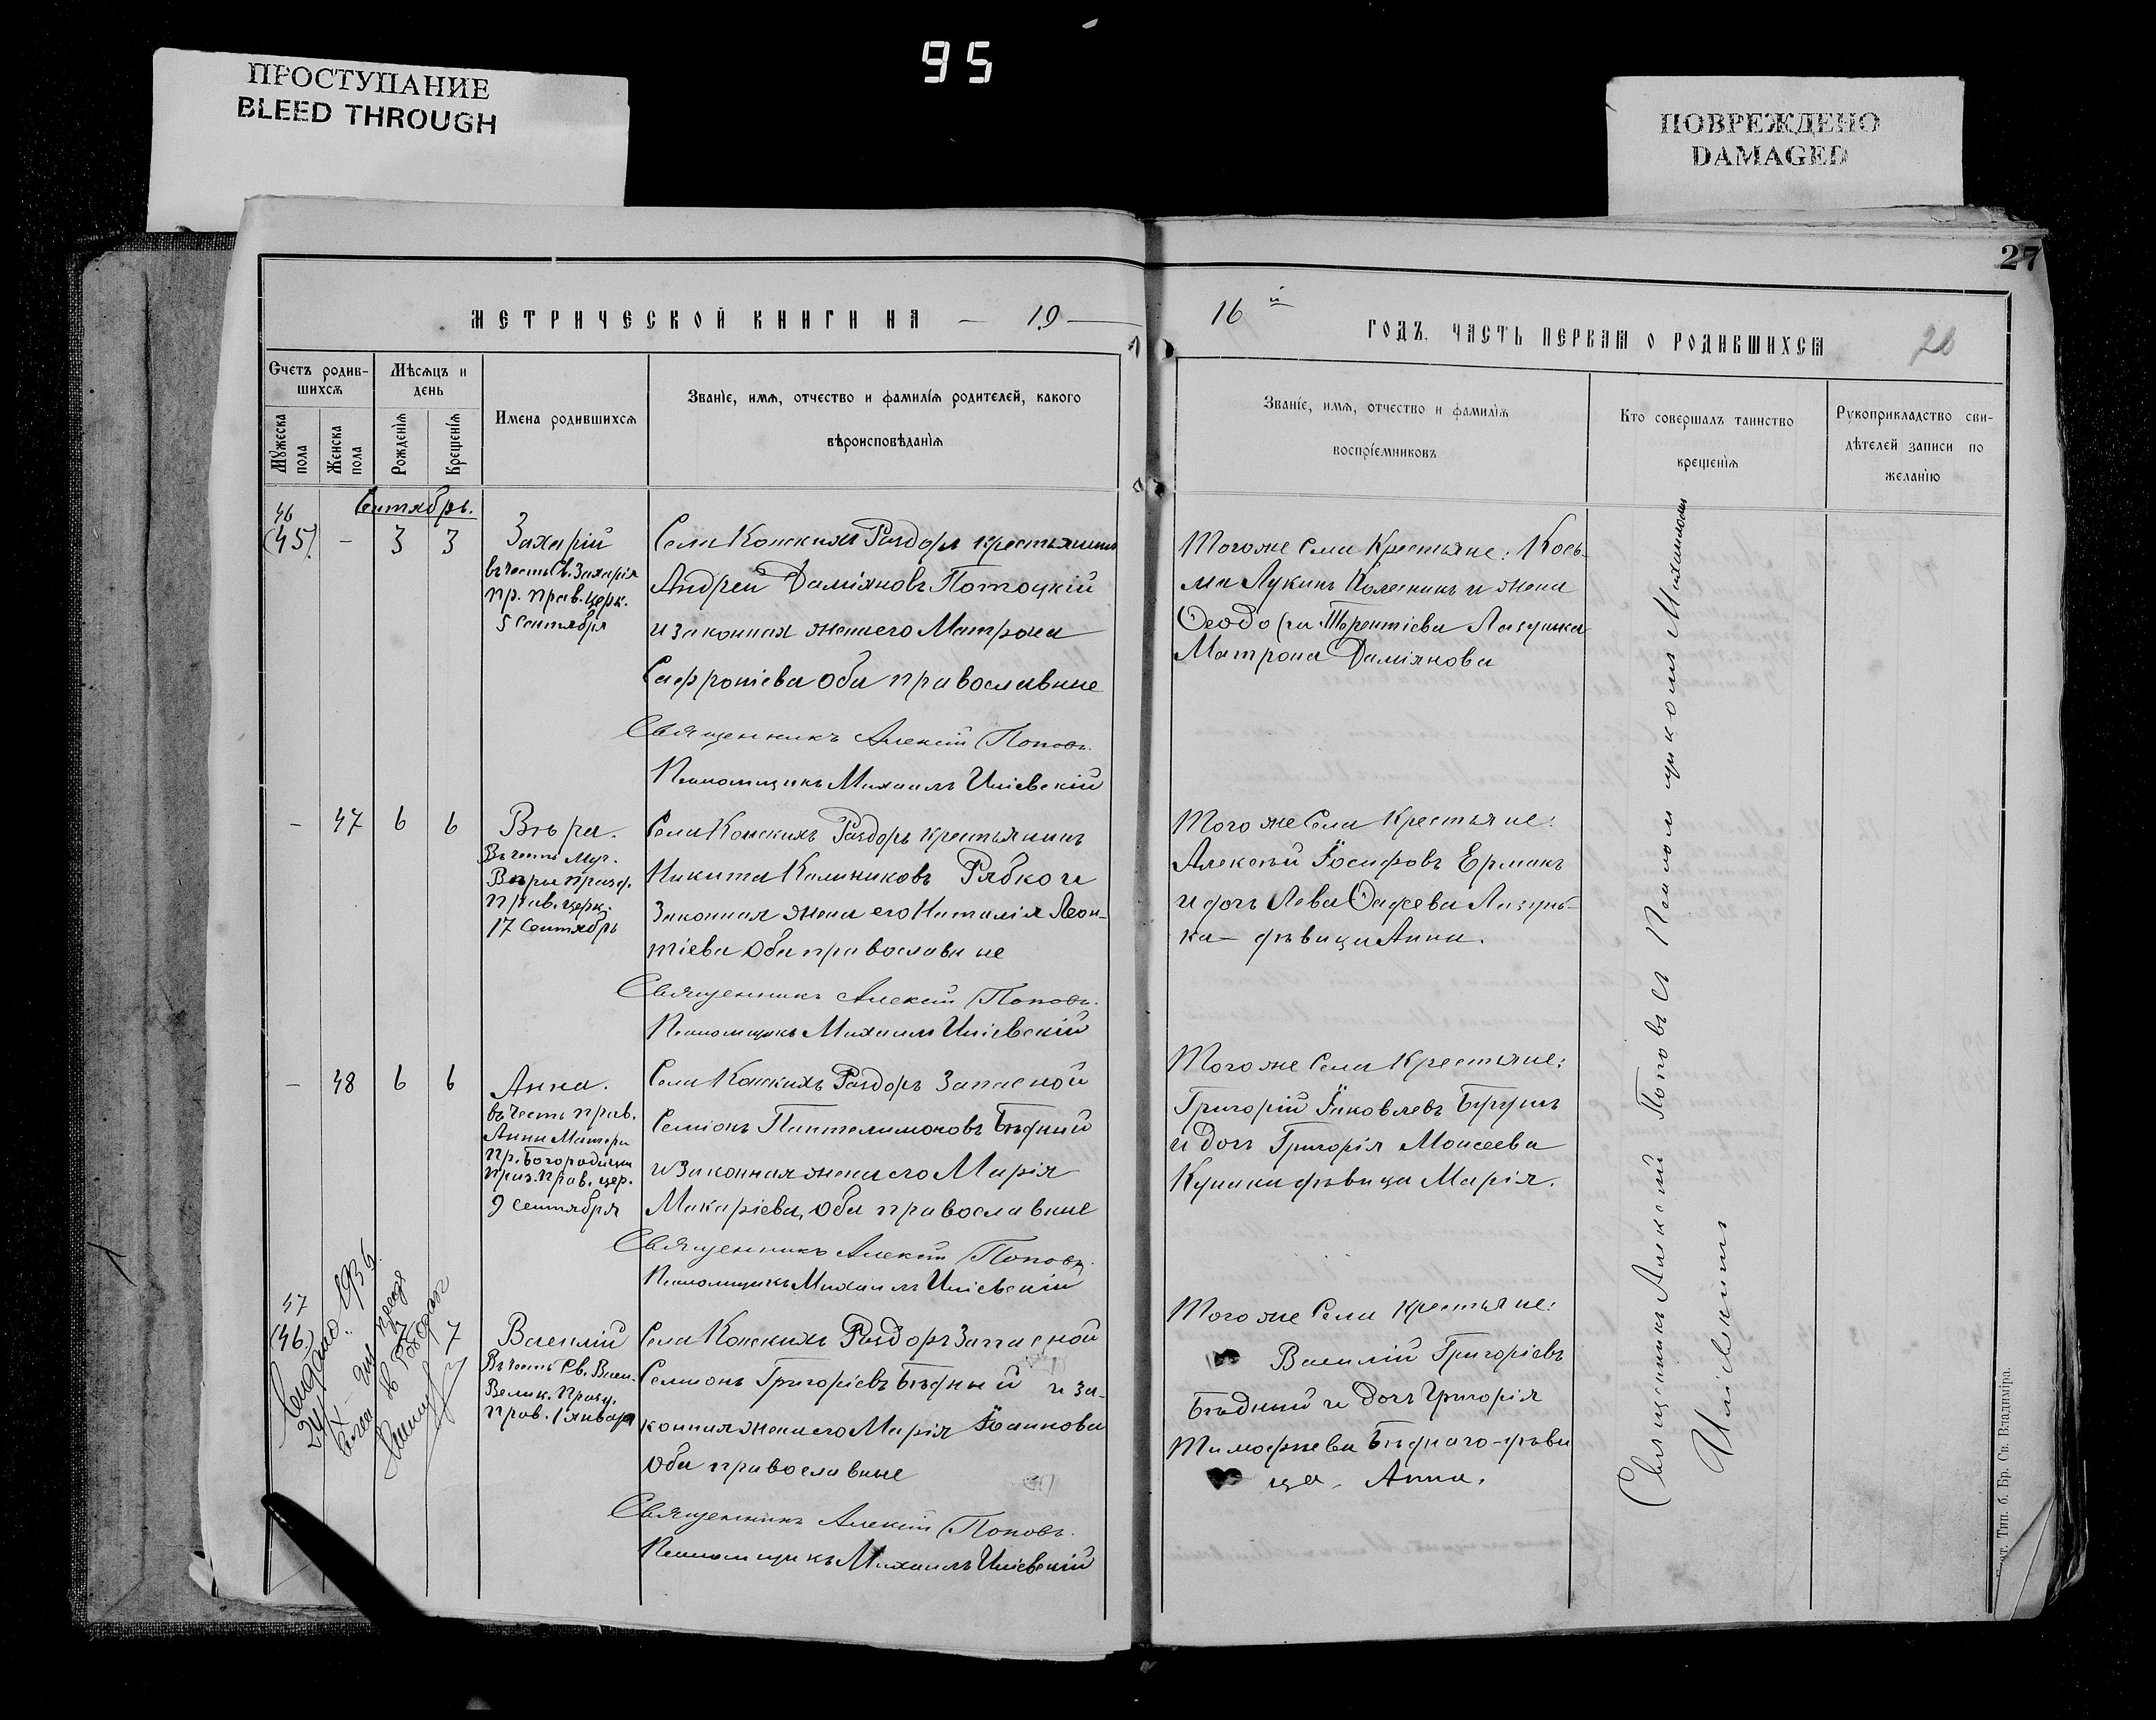 95
ПРОСТУПАНИЕ
BLEED THROUGH
ПОВРЕЖДЕНО
DAMAGED
27
МЕТРИЧЕСКОЙ КНИГИ НА — 19 —
16й ГОДЪ. ЧАСТЬ ПЕРВАѦ О РОДИВШИХСѦ
Счетъ родив-
шихсѧ
Мѣсѧцъ и
день
Мужеска
пола
Женска
пола
Рожденїѧ
Крещенїѧ
Имена родившихсѧ
Званїе, имѧ, отчество и фамилїѧ родителей, какого
вѣроисповѣданїѧ
Званїе, имѧ, отчество и фамилїѧ
воспрїемниковъ
Кто совершалъ таинство
крещенїѧ
Рукоприкладство сви-
дѣтелей записи по
желанїю
Сентябрь.
46
(45). - 3 3
Захарій
въ честь Св. Захарія
пр. прав. церк.
5 Сентября
Села Конскихъ Раздоръ крестьянинъ
Андрей Даміяновъ Потоцкій
и законная жена его Матрона
Сафроніева оба православные
Священникъ Алексій Поповъ.
Псаломщикъ Михаилъ Иліевскій
Тогоже Села Крестьяне: Кось-
ма Лукинъ Колесникъ и жена
Матрона Даміянова
- 47 6 6
Вѣра.
Въ честь Муч.
Вѣры празд.
прав. церк.
17 Сентябрь
Села Конскихъ Раздоръ крестьянинъ
Никита Калиниковъ Рябко и
Законная жена его Наталія Леон-
тіева Оба православные
Священникъ Алексій Поповъ.
Псаломщикъ Михаилъ Иліевскій
Того же Села Крестьяне:
Алексѣй Іосифовъ Ермакъ
ка - дѣвица Анна.
- 48 6 6
Анна.
въ честь прав.
Анны Матери
Пр. Богородицы
праз. прав. цер.
9 Сентября
Села Конскихъ Раздоръ Запасной
Семіонъ Пантелимоновъ Бѣдний
и Законная жена его Марія
Макаріева, Оба православные
Священникъ Алексій Поповъ.
Псаломщикъ Михаилъ Иліевскій
Того же Села Крестьяне:
Григорій Іаковлевъ
и дочь Григорія Моисеева
дѣвица Марія.
47
(46)
7
Василій
Въ честь Св. Васи.
Велик. празд.
прав. 1 января
Села Конскихъ Раздоръ Запасной
Семионъ Григоріевъ Бѣдный и за-
конная жена его Марія Іоаннова
Оба православные
Священникъ Алексій Поповъ.
Псаломщикъ Михаилъ Иліевскій
Того же Села крестьяне:
Василій Григоріевъ
Бѣдный и дочь Григорія
Тимофѣева Бѣднаго - дѣви
ца. Анна.
1936
Священникъ Алексій Поповъ съ Псаломщикомъ Михаиломъ
Иліевскимъ
Тип. б. Бр. Св. Владиміра.